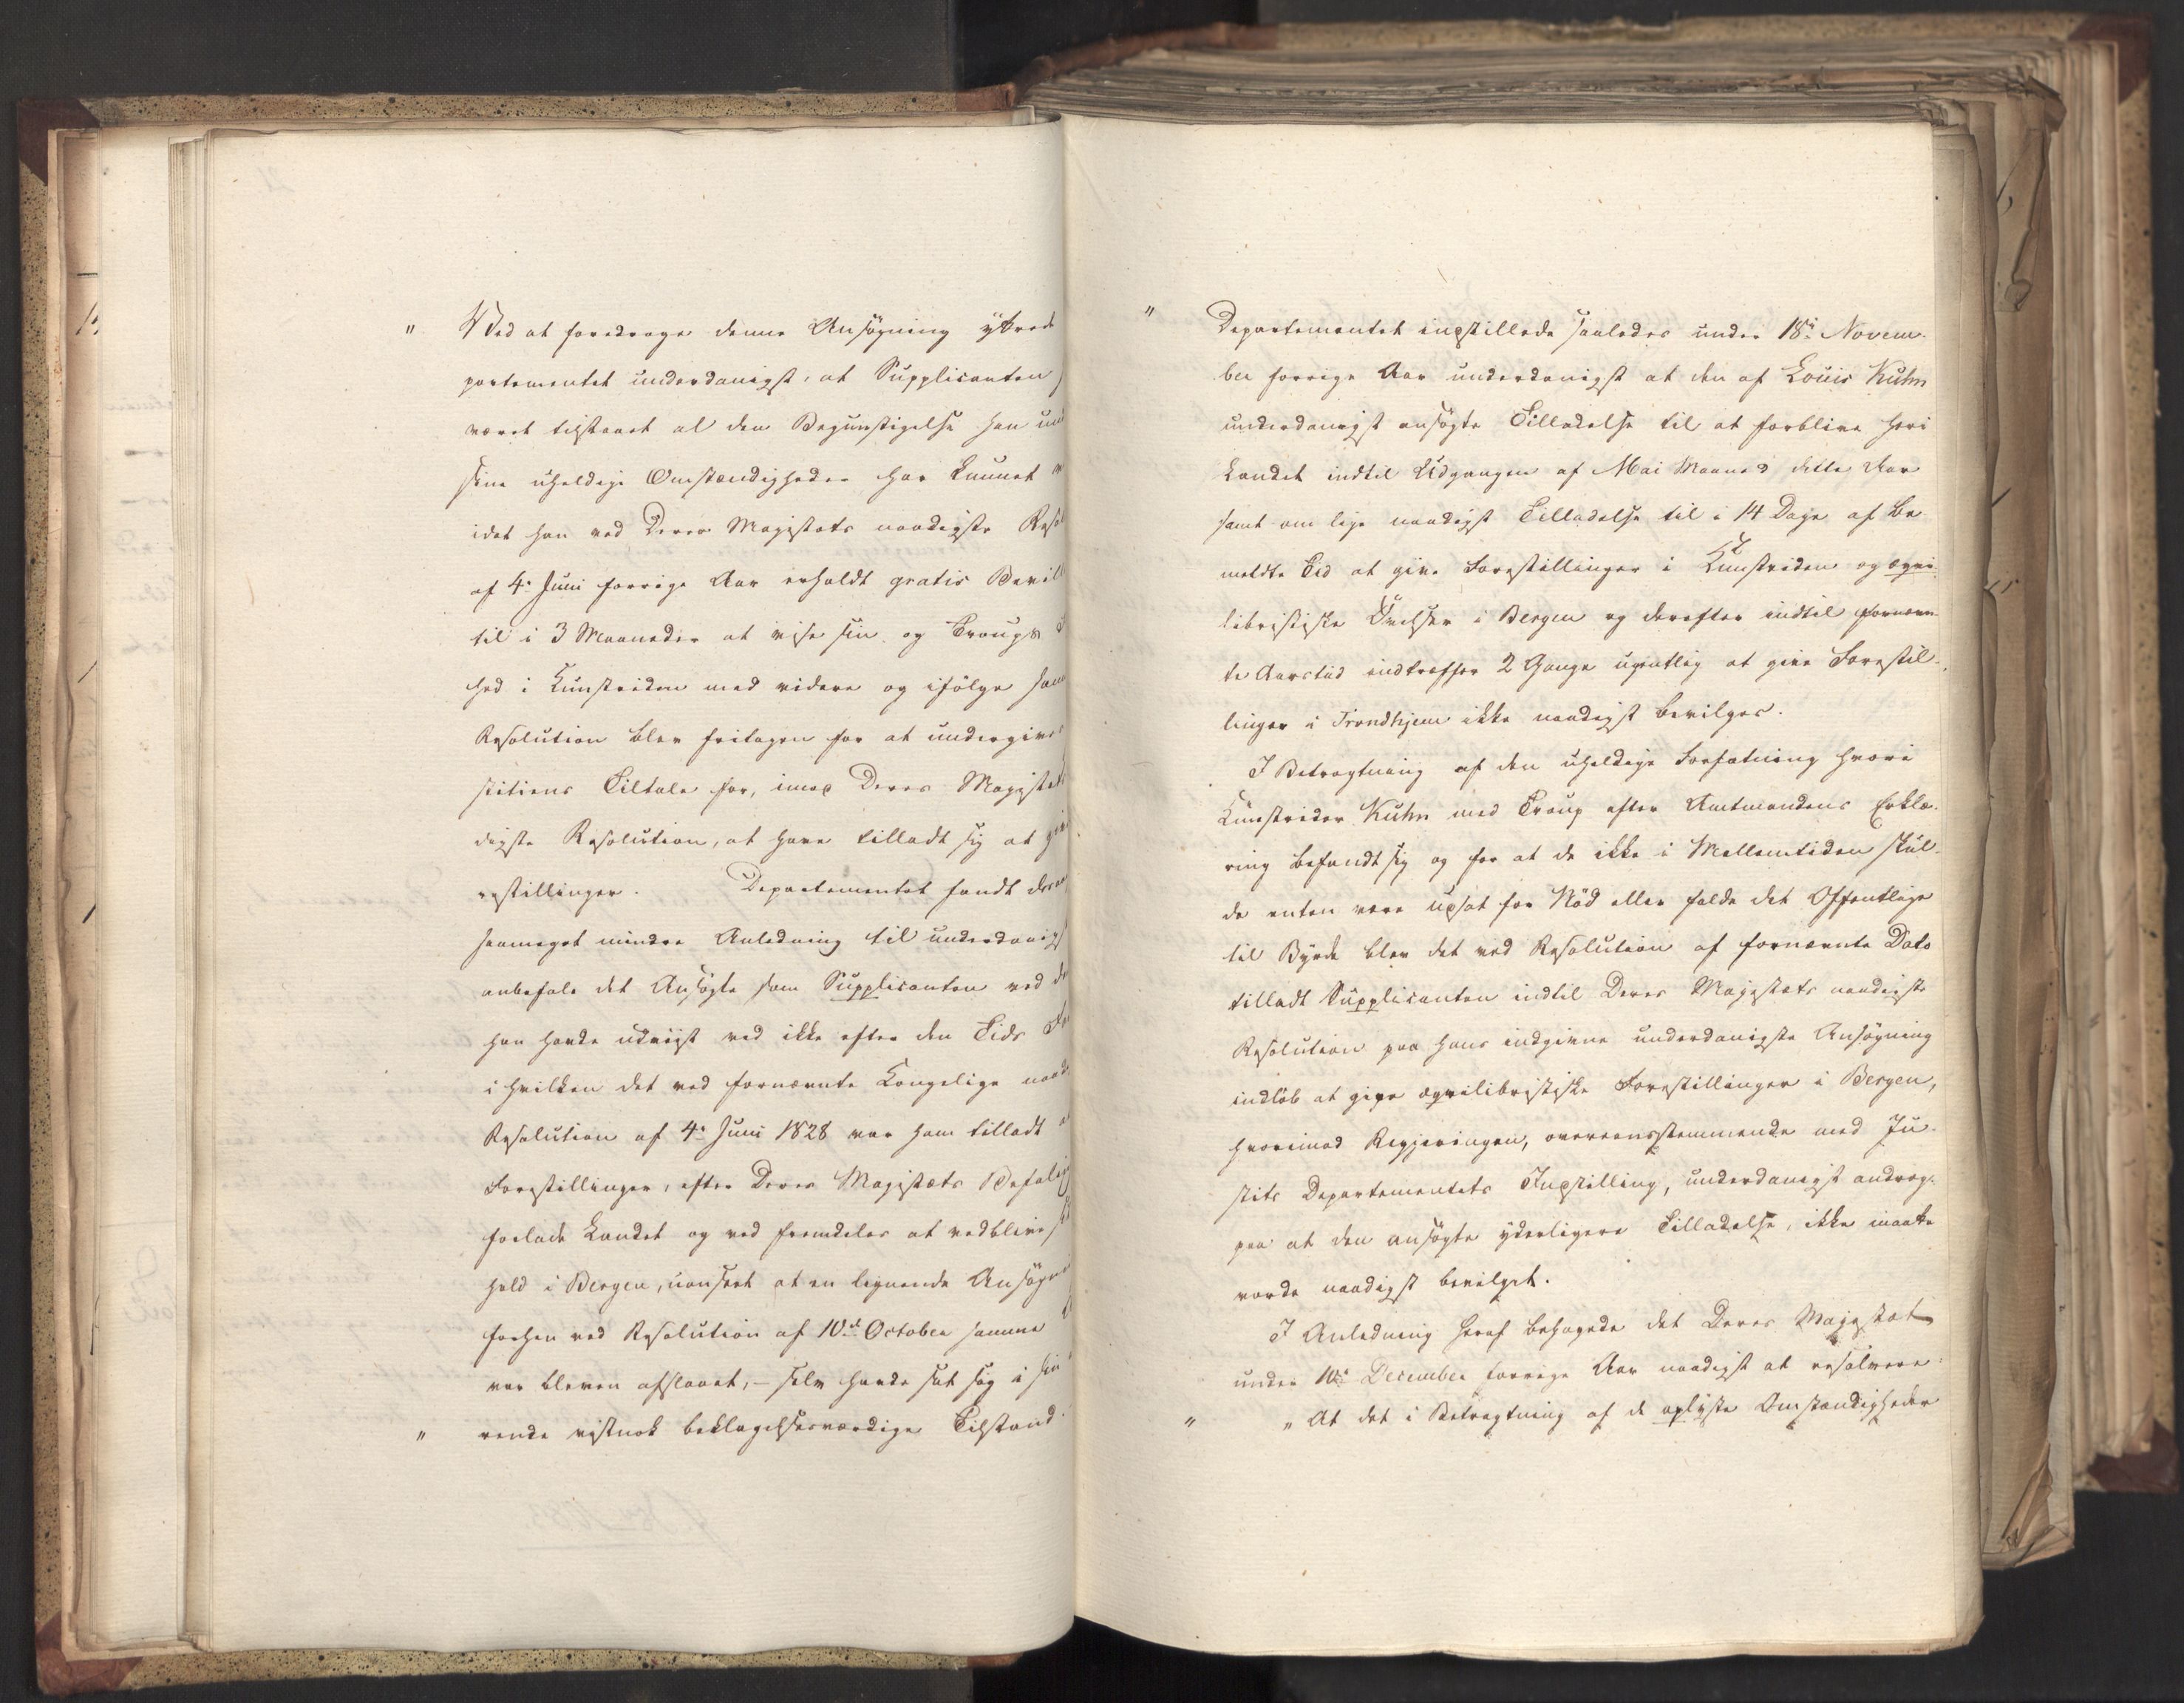 " Ved at foredrage denne Ansøgning yttrede
partementet underdanigst, at Supplicanten
været tilstaaet al den Begunstigelse han un
sine uheldige Omstændigheder har kunnet
idet han ved Deres Majestæts naadigste Resol
af 4de Juni forrige Aar erholdt gratis Bevill
til i 3 Maaneder at vise sin og Troups
hed i Kunstriden med videre og ifølge sam
Resolution blev fritagen for at undergives
stitiens Tiltale for, imod Deres Majestæts
digste Resolution, at have tilladt sig at give
restillinger. Departementet fandt der
saameget mindre Anledning til underdanigst
anbefale det Ansøgte som Supplicanten ved
han havde udviist ved ikke efter den Tids
i hvilken det ved fornævnte Kongelige naad
Resolution af 4de Juni 1828 var ham tilladt
Forestillinger, efter Deres Majestæts Befaling
forlade Landet og ved fremdeles at vedblive
hold i Bergen, uanseet at en lignende Ansøgni
forhen ved Resolution af 10de October samme
var bleven afslaaet, – selv havde sat sig i sin
" rende vistnok beklagelsesværdige Tilstand.
" Departementet indstillede saaledes under 18de Novem-
ber forrige Aar underdanigst at den af Louis Kuhn
underdanigst ansøgte Tilladelse til at forblive heri
Landet indtil Udgangen af Mai Maaned dette Aar
samt om lige naadigst Tilladelse til i 14 Dage af be-
meldte Tid at give Forestillinger i Kunstriden og æqvi-
libristiske Øvelser i Bergen og derefter indtil fornævn-
te Aarstid indtræffer 2 Gange ugentlig at give Forestil-
linger i Trondhjem ikke naadigst bevilges.
I Betragtning af den uheldige Forfatning hvori
Kunstrider Kuhn med Troup efter Amtmandens Erklæ-
ring befandt sig og for at de ikke i Mellemtiden skul-
de enten være udsat for Nød eller falde det Offentlige
til Byrde blev det ved Resolution af fornævnte Dato
tilladt Supplicanten indtil Deres Majestæts naadigste
Resolution paa hans indgivne underdanigste Ansøgning
indløb at give æqvilibristiske Forestillinger i Bergen,
hvorimod Regjeringen, overeensstemmende med Ju-
stits Departementets Indstilling, underdanigst androg
paa at den ansøgte yderligere Tilladelse, ikke maatte
vorde naadigst bevilget.
I Anledning heraf behagede det Deres Majestæt
under 10de December forrige Aar naadigst at resolvere:
" „At det i Betragtning af de oplyste Omstændigheder